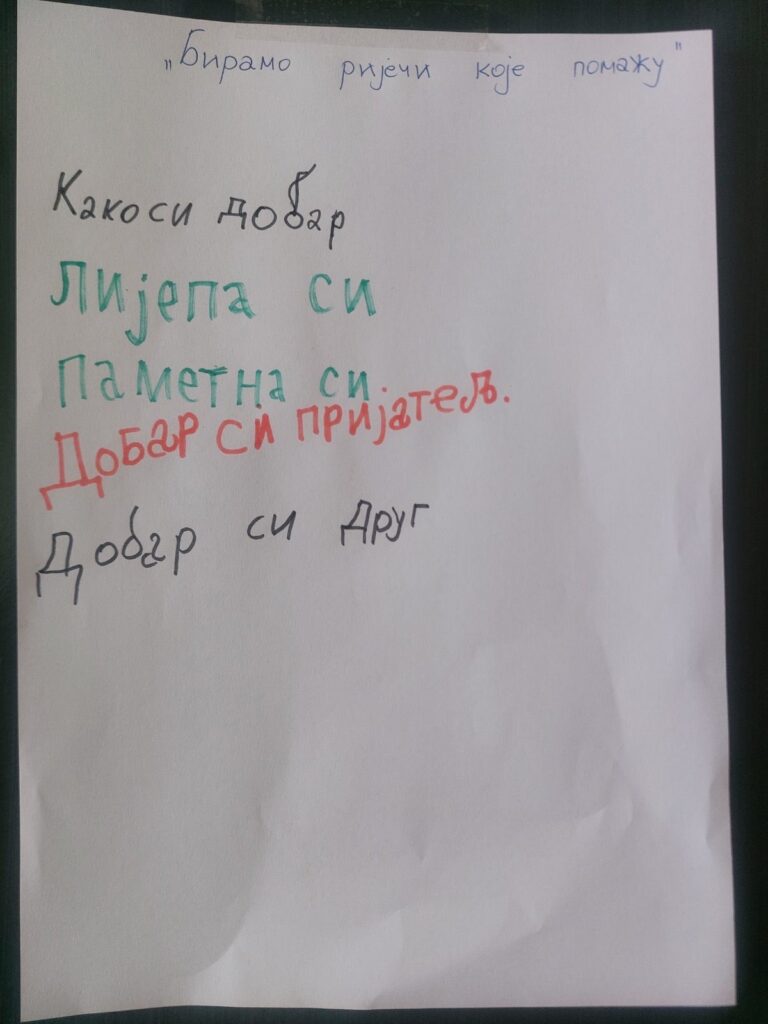 „Бирамо ријечи које помажу"
Какоси добар
Лијепа си
Паметна си
Добар си пријатељ.
Добар си друг